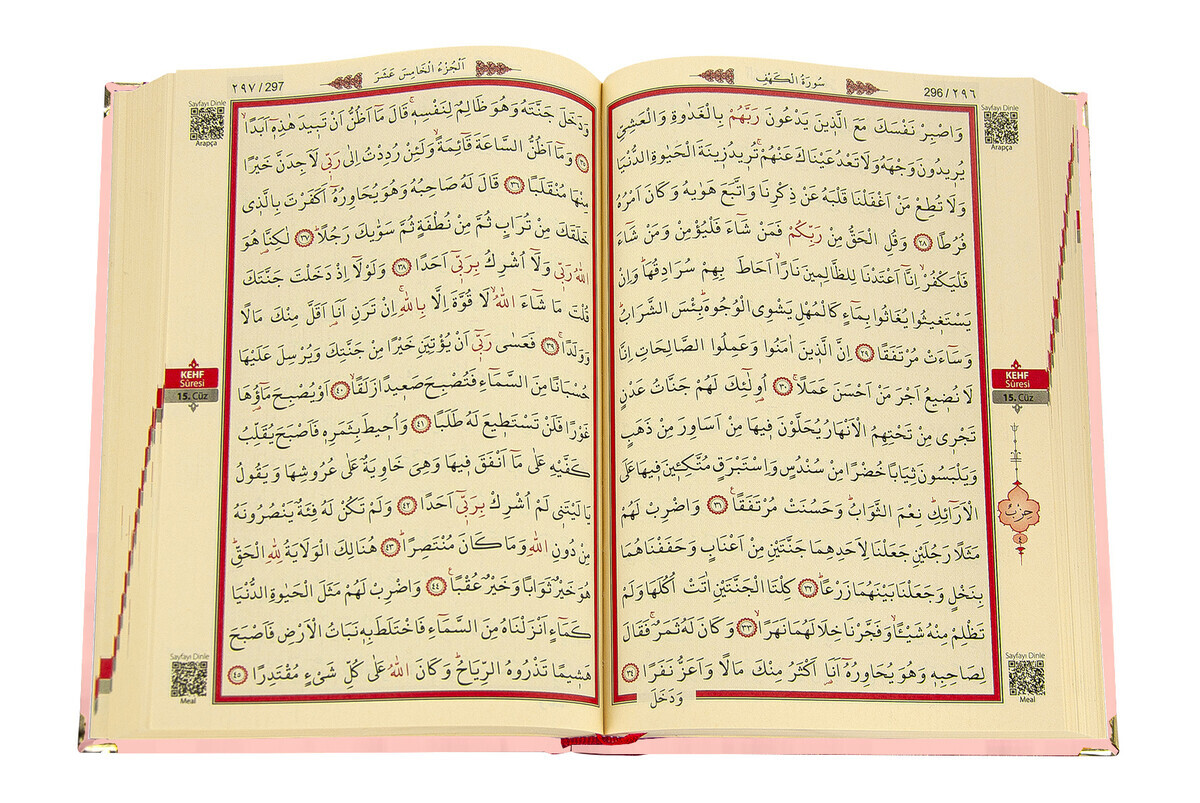 سُورَةُ الْكَهْفِ
296 / ٢٩٦
Sayfayı Dinle
Arapça
وَاصْبِرْ نَفْسَكَ مَعَ الَّذ۪ينَ يَدْعُونَ رَبَّهُمْ بِالْغَدٰوةِ وَالْعَشِيِّ
يُر۪يدُونَ وَجْهَهُ وَلَا تَعْدُ عَيْنَاكَ عَنْهُمْۚ تُر۪يدُ ز۪ينَةَ الْحَيٰوةِ الدُّنْيَا
وَلَا تُطِعْ مَنْ اَغْفَلْنَا قَلْبَهُ عَنْ ذِكْرِنَا وَاتَّبَعَ هَوٰيهُ وَكَانَ اَمْرُهُ
فُرُطًا ٢٨ وَقُلِ الْحَقُّ مِنْ رَبِّكُمْ فَمَنْ شَٓاءَ فَلْيُؤْمِنْ وَمَنْ شَٓاءَ
فَلْيَكْفُرْۙ اِنَّٓا اَعْتَدْنَا لِلظَّالِم۪ينَ نَارًاۙ اَحَاطَ بِهِمْ سُرَادِقُهَاۜ وَاِنْ
يَسْتَغ۪يثُوا يُغَاثُوا بِمَٓاءٍ كَالْمُهْلِ يَشْوِي الْوُجُوهَۜ بِئْسَ الشَّرَابُۜ
وَسَٓاءَتْ مُرْتَفَقًا ٢٩ اِنَّ الَّذ۪ينَ اٰمَنُوا وَعَمِلُوا الصَّالِحَاتِ اِنَّا
لَا نُض۪يعُ اَجْرَ مَنْ اَحْسَنَ عَمَلًاۚ ٣٠ اُو۬لٰٓئِكَ لَهُمْ جَنَّاتُ عَدْنٍ
تَجْر۪ي مِنْ تَحْتِهِمُ الْاَنْهَارُ يُحَلَّوْنَ ف۪يهَا مِنْ اَسَاوِرَ مِنْ ذَهَبٍ
وَيَلْبَسُونَ ثِيَابًا خُضْرًا مِنْ سُنْدُسٍ وَاِسْتَبْرَقٍ مُتَّكِـ۪ٔينَ ف۪يهَا عَلَى
الْاَرَٓائِكِۜ نِعْمَ الثَّوَابُۜ وَحَسُنَتْ مُرْتَفَقًا۟ ٣١ وَاضْرِبْ لَهُمْ
مَثَلًا رَجُلَيْنِ جَعَلْنَا لِاَحَدِهِمَا جَنَّتَيْنِ مِنْ اَعْنَابٍ وَحَفَفْنَاهُمَا
بِنَخْلٍ وَجَعَلْنَا بَيْنَهُمَا زَرْعًاۜ ٣٢ كِلْتَا الْجَنَّتَيْنِ اٰتَتْ اُكُلَهَا وَلَمْ
تَظْلِمْ مِنْهُ شَيْـًٔاۙ وَفَجَّرْنَا خِلَالَهُمَا نَهَرًاۙ ٣٣ وَكَانَ لَهُ ثَمَرٌۚ فَقَالَ
لِصَاحِبِه۪ وَهُوَ يُحَاوِرُهُٓ اَنَا۬ اَكْثَرُ مِنْكَ مَالًا وَاَعَزُّ نَفَرًا ٣٤
وَدَخَلَ
KEHF
Sûresi
15. Cüz
حزب
٤
Sayfayı Dinle
Meal
اَلْجُزْءُ الْخَامِسَ عَشَرَ
٢٩٧ / 297
Sayfayı Dinle
Arapça
وَدَخَلَ جَنَّتَهُ وَهُوَ ظَالِمٌ لِنَفْسِه۪ۚ قَالَ مَٓا اَظُنُّ اَنْ تَب۪يدَ هٰذِه۪ٓ اَبَدًاۙ
٣٥ وَمَٓا اَظُنُّ السَّاعَةَ قَٓائِمَةًۙ وَلَئِنْ رُدِدْتُ اِلٰى رَبّ۪ي لَاَجِدَنَّ خَيْرًا
مِنْهَا مُنْقَلَبًا ٣٦ قَالَ لَهُ صَاحِبُهُ وَهُوَ يُحَاوِرُهُٓ اَكَفَرْتَ بِالَّذ۪ي
خَلَقَكَ مِنْ تُرَابٍ ثُمَّ مِنْ نُطْفَةٍ ثُمَّ سَوّٰيكَ رَجُلًاۜ ٣٧ لٰكِنَّا۬ هُوَ
اللّٰهُ رَبّ۪ي وَلَٓا اُشْرِكُ بِرَبّ۪ٓي اَحَدًا ٣٨ وَلَوْلَٓا اِذْ دَخَلْتَ جَنَّتَكَ
قُلْتَ مَا شَٓاءَ اللّٰهُۙ لَا قُوَّةَ اِلَّا بِاللّٰهِۚ اِنْ تَرَنِ اَنَا۬ اَقَلَّ مِنْكَ مَالًا
وَوَلَدًاۚ ٣٩ فَعَسٰى رَبّ۪ٓي اَنْ يُؤْتِيَنِ خَيْرًا مِنْ جَنَّتِكَ وَيُرْسِلَ عَلَيْهَا
حُسْبَانًا مِنَ السَّمَٓاءِ فَتُصْبِحَ صَع۪يدًا زَلَقًاۙ ٤٠ اَوْ يُصْبِحَ مَٓاؤُ۬هَا
غَوْرًا فَلَنْ تَسْتَط۪يعَ لَهُ طَلَبًا ٤١ وَاُح۪يطَ بِثَمَرِه۪ فَاَصْبَحَ يُقَلِّبُ
كَفَّيْهِ عَلٰى مَٓا اَنْفَقَ ف۪يهَا وَهِيَ خَاوِيَةٌ عَلٰى عُرُوشِهَا وَيَقُولُ
يَا لَيْتَن۪ي لَمْ اُشْرِكْ بِرَبّ۪ٓي اَحَدًا ٤٢ وَلَمْ تَكُنْ لَهُ فِئَةٌ يَنْصُرُونَهُ
مِنْ دُونِ اللّٰهِ وَمَا كَانَ مُنْتَصِرًاۜ ٤٣ هُنَالِكَ الْوَلَايَةُ لِلّٰهِ الْحَقِّۜ
هُوَ خَيْرٌ ثَوَابًا وَخَيْرٌ عُقْبًا۟ ٤٤ وَاضْرِبْ لَهُمْ مَثَلَ الْحَيٰوةِ الدُّنْيَا
كَمَٓاءٍ اَنْزَلْنَاهُ مِنَ السَّمَٓاءِ فَاخْتَلَطَ بِه۪ نَبَاتُ الْاَرْضِ فَاَصْبَحَ
هَش۪يمًا تَذْرُوهُ الرِّيَاحُۜ وَكَانَ اللّٰهُ عَلٰى كُلِّ شَيْءٍ مُقْتَدِرًا ٤٥
KEHF
Sûresi
15. Cüz
Sayfayı Dinle
Meal